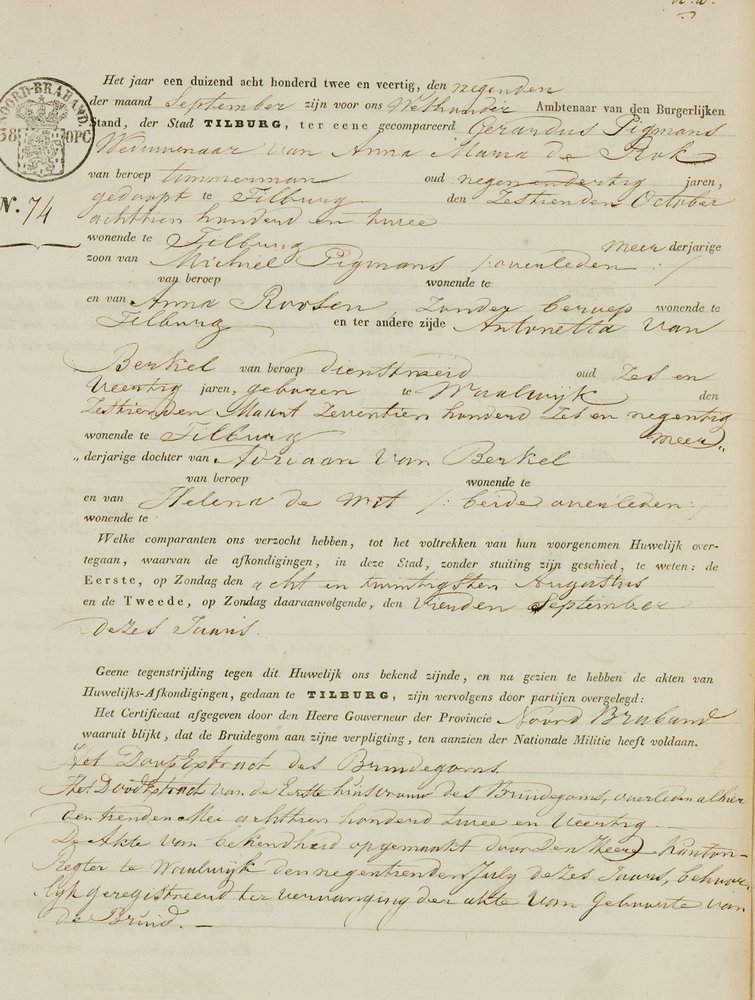 NOORD-BRABAND
38 OPC
N.º 74
Het jaar een duizend acht honderd twee en veertig, den negenden
der maand September zijn voor ons Wethouder Ambtenaar van den Burgerlijken
Stand, der Stad TILBURG, ter eene gecompareerd Gerardus Pigmans
Weduwenaar van Anna Maria de Rok
van beroep timmerman oud negenendertig jaren,
gedoopt te Tilburg den Zestienden October
achttien honderd en twee
wonende te Tilburg meer derjarige
zoon van Michiel Pigmans /: overleden :/
van beroep wonende te
en van Anna Roosen Zonder beroep wonende te
Tilburg en ter andere zijde Antonetta van
Berkel van beroep dienstmeid oud Zes en
Veertig jaren, geboren te Waalwijk den
Zestienden Maart Zeventien honderd Zes en negentig
wonende te Tilburg meer
„ derjarige dochter van Adriaan van Berkel
van beroep wonende te
en van Helena de Wit /: beide overleden :/
wonende te
Welke comparanten ons verzocht hebben, tot het voltrekken van hun voorgenomen Huwelijk over-
tegaan, waarvan de afkondigingen, in deze Stad, zonder stuiting zijn geschied, te weten: de
Eerste, op Zondag den acht en twintigsten Augustus
en de Tweede, op Zondag daaraanvolgende, den Vierden September
dezes Jaars.
Geene tegenstrijding tegen dit Huwelijk ons bekend zijnde, en na gezien te hebben de akten van
Huwelijks-Afkondigingen, gedaan te TILBURG, zijn vervolgens door partijen overgelegd:
Het Certificaat afgegeven door den Heere Gouverneur der Provincie Noord Braband
waaruit blijkt, dat de Bruidegom aan zijne verpligting, ten aanzien der Nationale Militie heeft voldaan.
Het Doop Extract des Bruidegoms.
Het Doodextract van de Eerste huisvrouw des Bruidegoms, overleden alhier
den tienden Mei achttien honderd twee en Veertig
De Akte van bekendheid opgemaakt door Den Heere Kanton-
Regter te Waalwijk den negentienden July dezes Jaars, behoor-
lijk geregistreerd ter vervanging der akte van Geboorte van
de Bruid. —